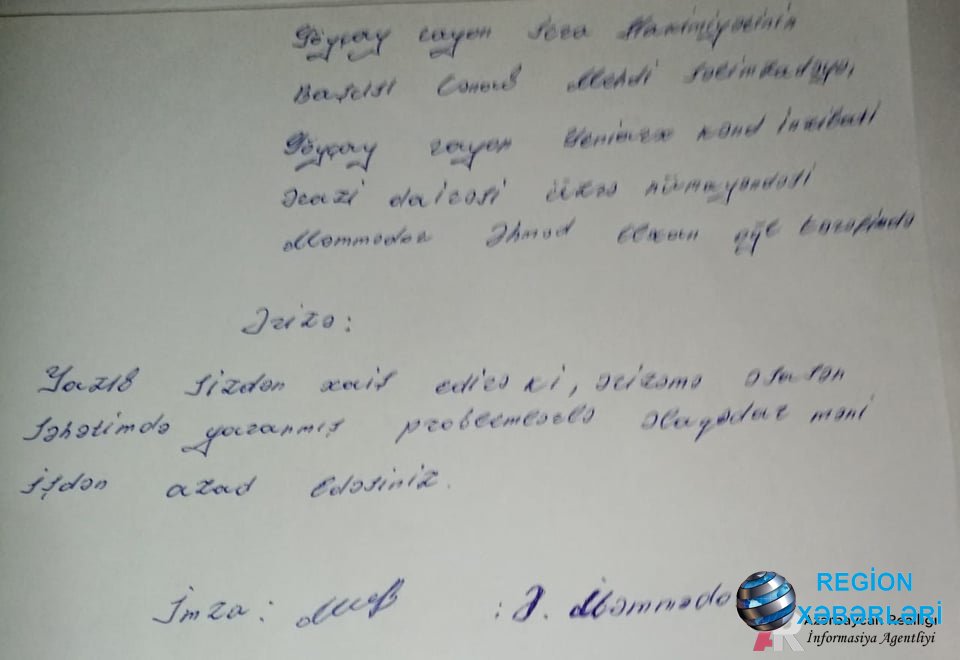 Göyçay rayon İcra Hakimiyəsinin
Başçısı Cənab Mehdi Səlimzadəyə,
Göyçay rayon Yeniarx kənd inzibati
ərazi dairəsi üzrə nümayəndəsi
Məmmədov Əhməd Elxan oğlu tərəfində
Ərizə:
Yazıb sizdən xaiş edirə ki, ərizəmə əsasən
səhətimdə yaranmış problemlərlə əlaqədar məni
işdən azad edəsiniz.
İmza: : Ə. Məmmədo
REGİON
XƏBƏRLƏRİ
Azərbaycan Reallığı
İnformasiya Agentliyi
AR